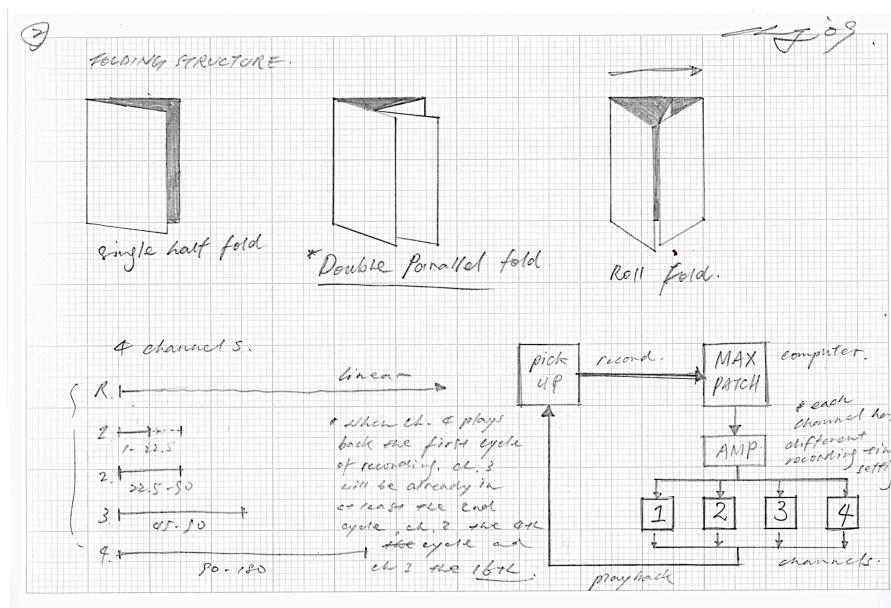 2
'09.
FOLDING STRUCTURE.
single half fold
* Double Parallel fold.
Roll Fold.
4 channels.
R. linear
1-22.5
2. 22.5-
3. 45-90
4. 90-180
* when ch. 4 plays
back the first cycle
of recording, ch. 3
will be already in
at least the 2nd
cycle, ch. 2 the 4th
the cycle and
ch 1 the 16th.
pick UP
record.
MAX PATCH
computer.
AMP.
* each
channel has
different
recording time
setting
1 2 3 4
channels.
playback